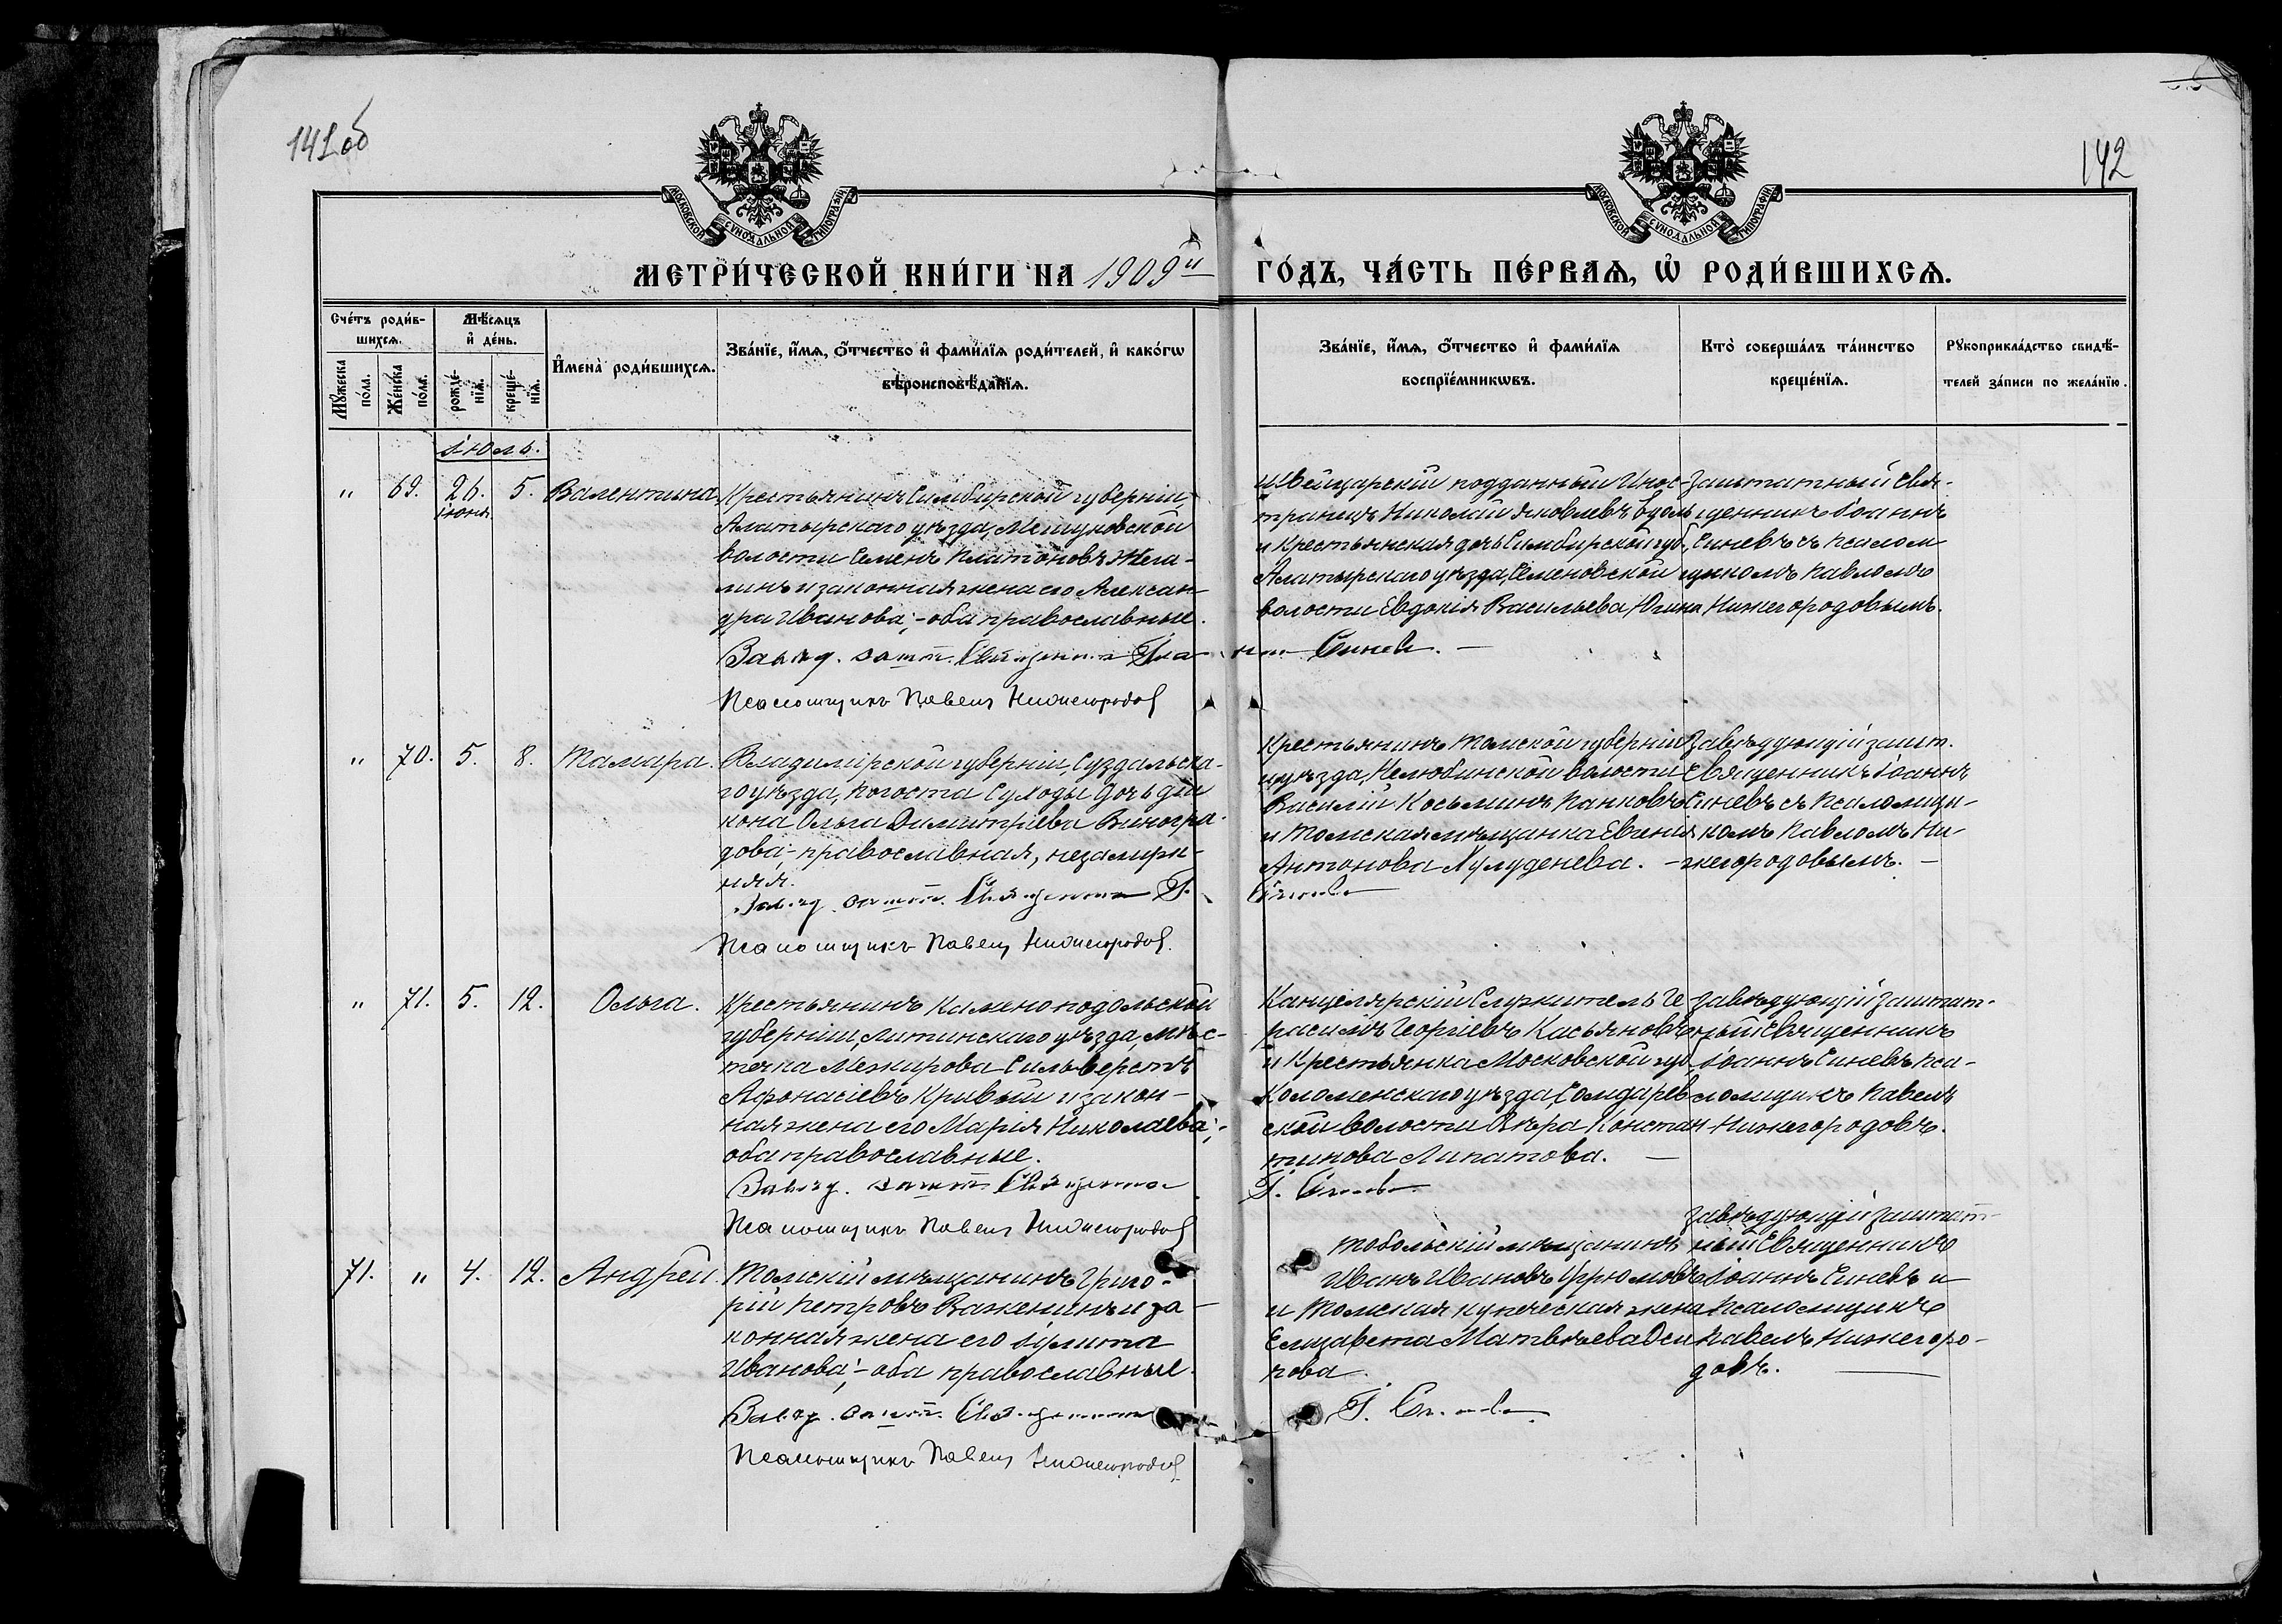 141 об
142
МОСКОВСКОЙ СѴНОДАЛЬНОЙ ТИПОГРАФІИ
МОСКОВСКОЙ СѴНОДАЛЬНОЙ ТИПОГРАФІИ
МЕТРИ́ЧЕСКОЙ КНИ́ГИ НА 1909й
ГО́ДЪ, ЧА́СТЬ ПЕ́РВАѦ, Ѡ҆ РОДИ́ВШИХСѦ.
Сче́тъ роди́в-
шихсѧ.
Мꙋ́жеска
по́ла.
Же́нска
по́ла.
Мѣ́сѧцъ
и҆ де́нь.
рожде́-
нїѧ.
креще́-
нїѧ.
И҆мена̀ роди́вшихсѧ.
Зва́нїе, и҆́мѧ, ѻ҆́тчество и҆ фами́лїѧ роди́телей, и҆ како́гѡ
вѣроисповѣ́данїѧ.
Зва́нїе, и҆́мѧ, ѻ҆́тчество и҆ фами́лїѧ
воспрїе́мникѡвъ.
Кто̀ соверша́лъ та́инство
креще́нїѧ.
Рꙋкоприкла́дство свидѣ́-
телей за́писи по жела́нїю.
Іюль.
" 69. 26. 5. Валентина.
іюня
Крестьянинъ Симбирской губерніи,
Алатырскаго уѣзда, Мешуковской
волости Семенъ Платоновъ
и законная жена его Алексан-
дра Иванова; - оба православные.
Завѣд. зашт. Священникъ Іоа
ннъ Синевъ. —
Псаломщикъ Павелъ Нижегородовъ
Швейцарскій подданный Инос-
транецъ Николай Яковлевъ
и Крестьянская дочь Симбирской губ.,
Алатырскаго уѣзда, Семеновской
волости Евдокія Васильева Югина
Заштатный Свя-
щенникъ Іоаннъ
Синевъ съ псалом
щикомъ Павломъ
Нижегородовымъ.
" 70. 5. 8. Тамара.
Владимірской губерніи, Суздальска-
го уѣзда, погоста Сулоды дочь дья
кона Ольга Димитріева Виногра-
дова; - православная, незамуж-
няя.
Завѣд. зашт. Священникъ І.
Синевъ
Псаломщикъ Павелъ Нижегородовъ.
Крестьянинъ Томской губерніи
и уѣзда, Нелюбинской волости
Василій Косьминъ Панковъ
и Томская мѣщанка Евгенія
Антонова Хулуденева. —
Завѣдующій зашт.
Священникъ Іоаннъ
Синевъ съ Псаломщи-
комъ Павломъ Ни-
жегородовымъ. —
" 71. 5. 12. Ольга.
Крестьянинъ Каменоподольской
губерніи, Литинскаго уѣзда, мѣс-
течка Межирова Сильверстъ
Афонасіевъ Кривый и закон-
ная жена его Марія Николаева; -
оба православные.
Завѣд. зашт. Священникъ
І. Синевъ
Псаломщикъ Павелъ Нижегородовъ
Канцелярскій Служитель Ге
расимъ Георгіевъ Касьяновъ
и Крестьянка Московской губ.
Коломенскаго уѣзда,
ской волости Вѣра Констан
тинова Липатова. —
Завѣдующій заштат-
ный Священникъ
Іоаннъ Синевъ Пса-
ломщикъ Павелъ
Нижегородовъ.
71. " 4. 12. Андрей.
Томскій мѣщанинъ Григо-
рій Петровъ Важенинъ и за
конная жена его Іулита
Иванова; - оба православные.
Завѣд. зашт. Священникъ
І. Синевъ
Псаломщикъ Павелъ Нижегородовъ
Тобольскій мѣщанинъ
Иванъ Ивановъ
и Томская купеческая жена
Елизавета Матвѣева Оси
пова.
Завѣдующій заштат-
ный Священникъ
Іоаннъ Синевъ и
Псаломщикъ
Павелъ Нижегоро-
довъ. —